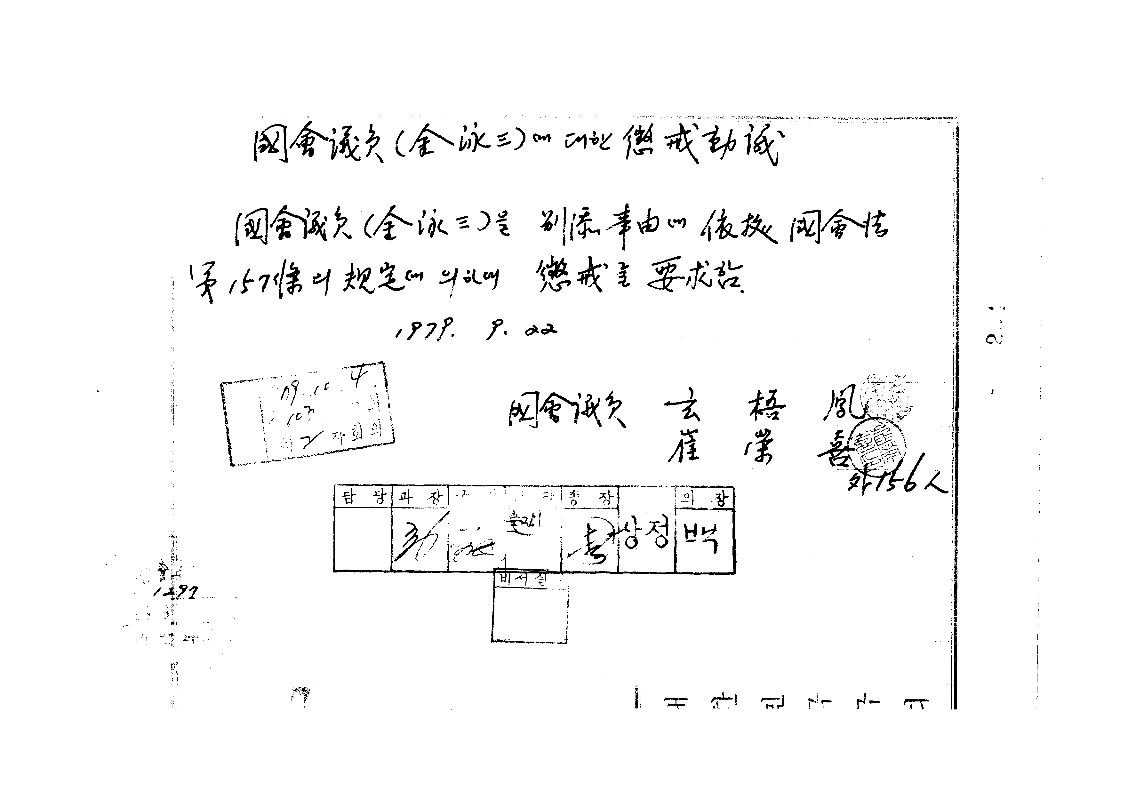 國會議員(金泳三)에 대한 懲戒動議
國會議員(金泳三)을 別添事由에 依據 國會法
第157條의 規定에 의하여 懲戒를 要求함.
1979. 9. 22
'79. 10. 4.
103 회
제 2 차회의
國會議員 玄梧鳳
崔榮喜
外156人
담당 과장 총장 의장
출장 상정 백
비서실
1297
2.
대한민국국회